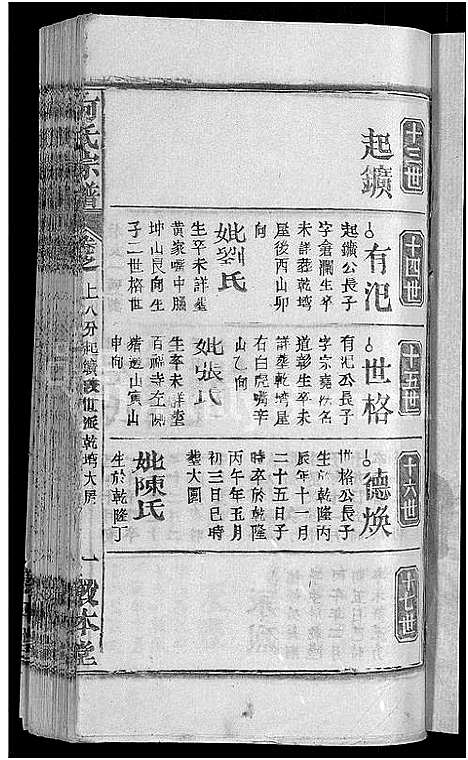 十三世
起鑛
十四世
有汜
起鑛公長子
字倉瀾生卒
未詳葬乾塆
屋後酉山卯
向
妣劉氏
生卒未詳塟
黃家嘴中腦
坤山艮向生
子二世格世
十五世
世格
有汜公長子
字宗堯
道彰生卒未
詳葬乾塆屋
右白虎嘴辛
山乙向
妣張氏
生卒未詳塟
百福寺左側
猪邊山寅山
申向
十六世
德煥
世格公長子
生於乾隆丙
辰年十一月
二十五日子
時卒於乾隆
丙午年五月
初三日巳時
塟大園
妣陳氏
生於乾隆丁
十七世
向氏宗譜
卷之上八分起鑛世派乾塆大屋
一
敦本堂